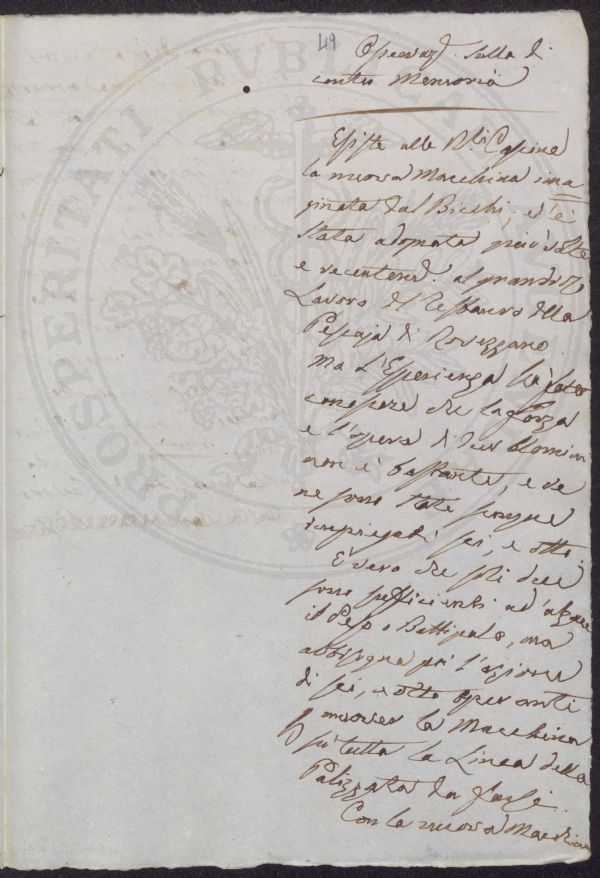 49
Osservaz.i sulla di
contro Memoria
Esiste alle R.li Cascine
la nuova Macchina ima
ginata dal Bicchi, ed è
stata adoprata più volte
e recentem.e al grandioso
Lavoro del Restauro della
Pescaja di Rovezzano.
Ma l'Esperienza ha fatto
conoscere che la forza
e l'opera di due Uomini
non è bastante, e ve
ne sono stati sempre
impiegati sei, e otto.
È vero che gli due
sono sufficienti ad alzare
il Peso o Battipalo, ma
abbisogna poi l'azione
di sei, e otto operanti
p muover la Macchina
p tutta la Linea della
Palizzata da farsi.
Con la nuova Macchina
PROSPERITATI PUBLICAE